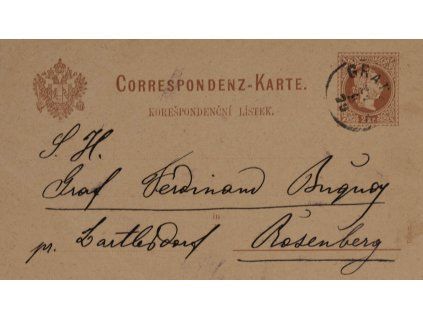 CORRESPONDENZ-KARTE.
KOREŠPONDENČNÍ LÍSTEK.
GRAT
79
2 kr.
S. H.
Graf Ferdinand Buquoy
in
pr. Bartlesdorf Rosenberg